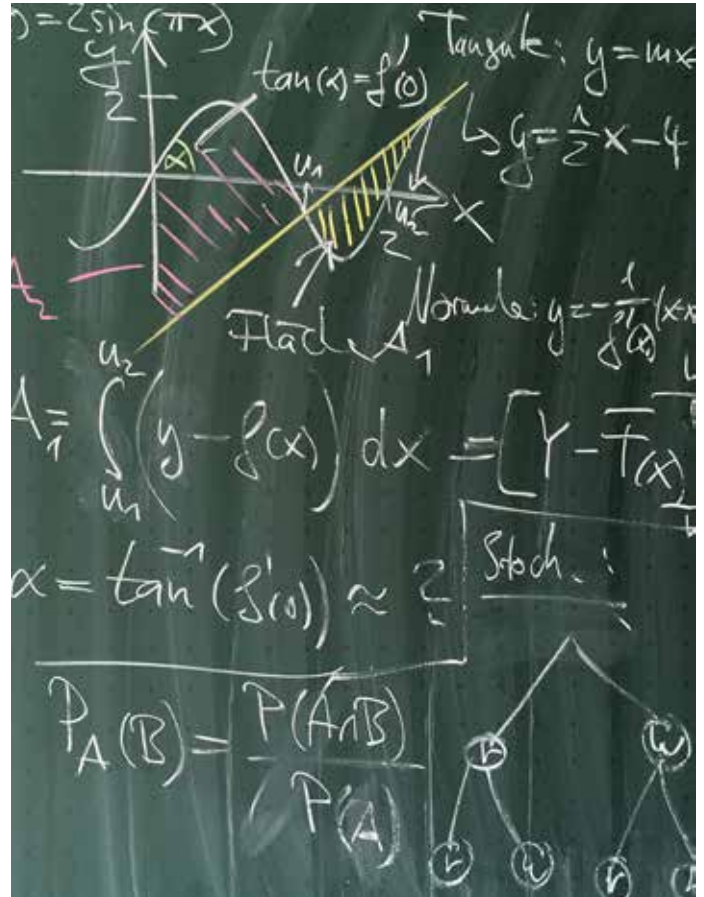 y=2sin(πx)
Tangente: y=mx
y
2
tan(α)=f'(0)
↳ y=1/2x-4
α
u₁
u₂
2
X
A₂
Fläche A₁
Normale: y=-1/f'(x)(x-x
A₁=∫_{u₁}^{u₂}(y-f(x))dx=[Y-F(x)
α=tan⁻¹(f'(0))≈?
Stoch.:
P_A(B)=P(A∩B)/P(A)
r
w
r
w
r